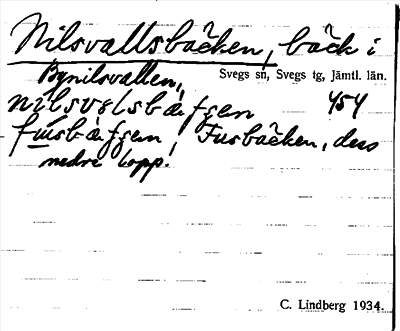 Nilsvallsbäcken, bäck i
Bynilsvallen, Svegs sn, Svegs tg, Jämtl. län.
nilsvɐlsbæ̀ƒɡen 454
fʉ́sbæ̀ƒɡen! Fusbäcken, dess
nedre lopp!
C. Lindberg 1934.